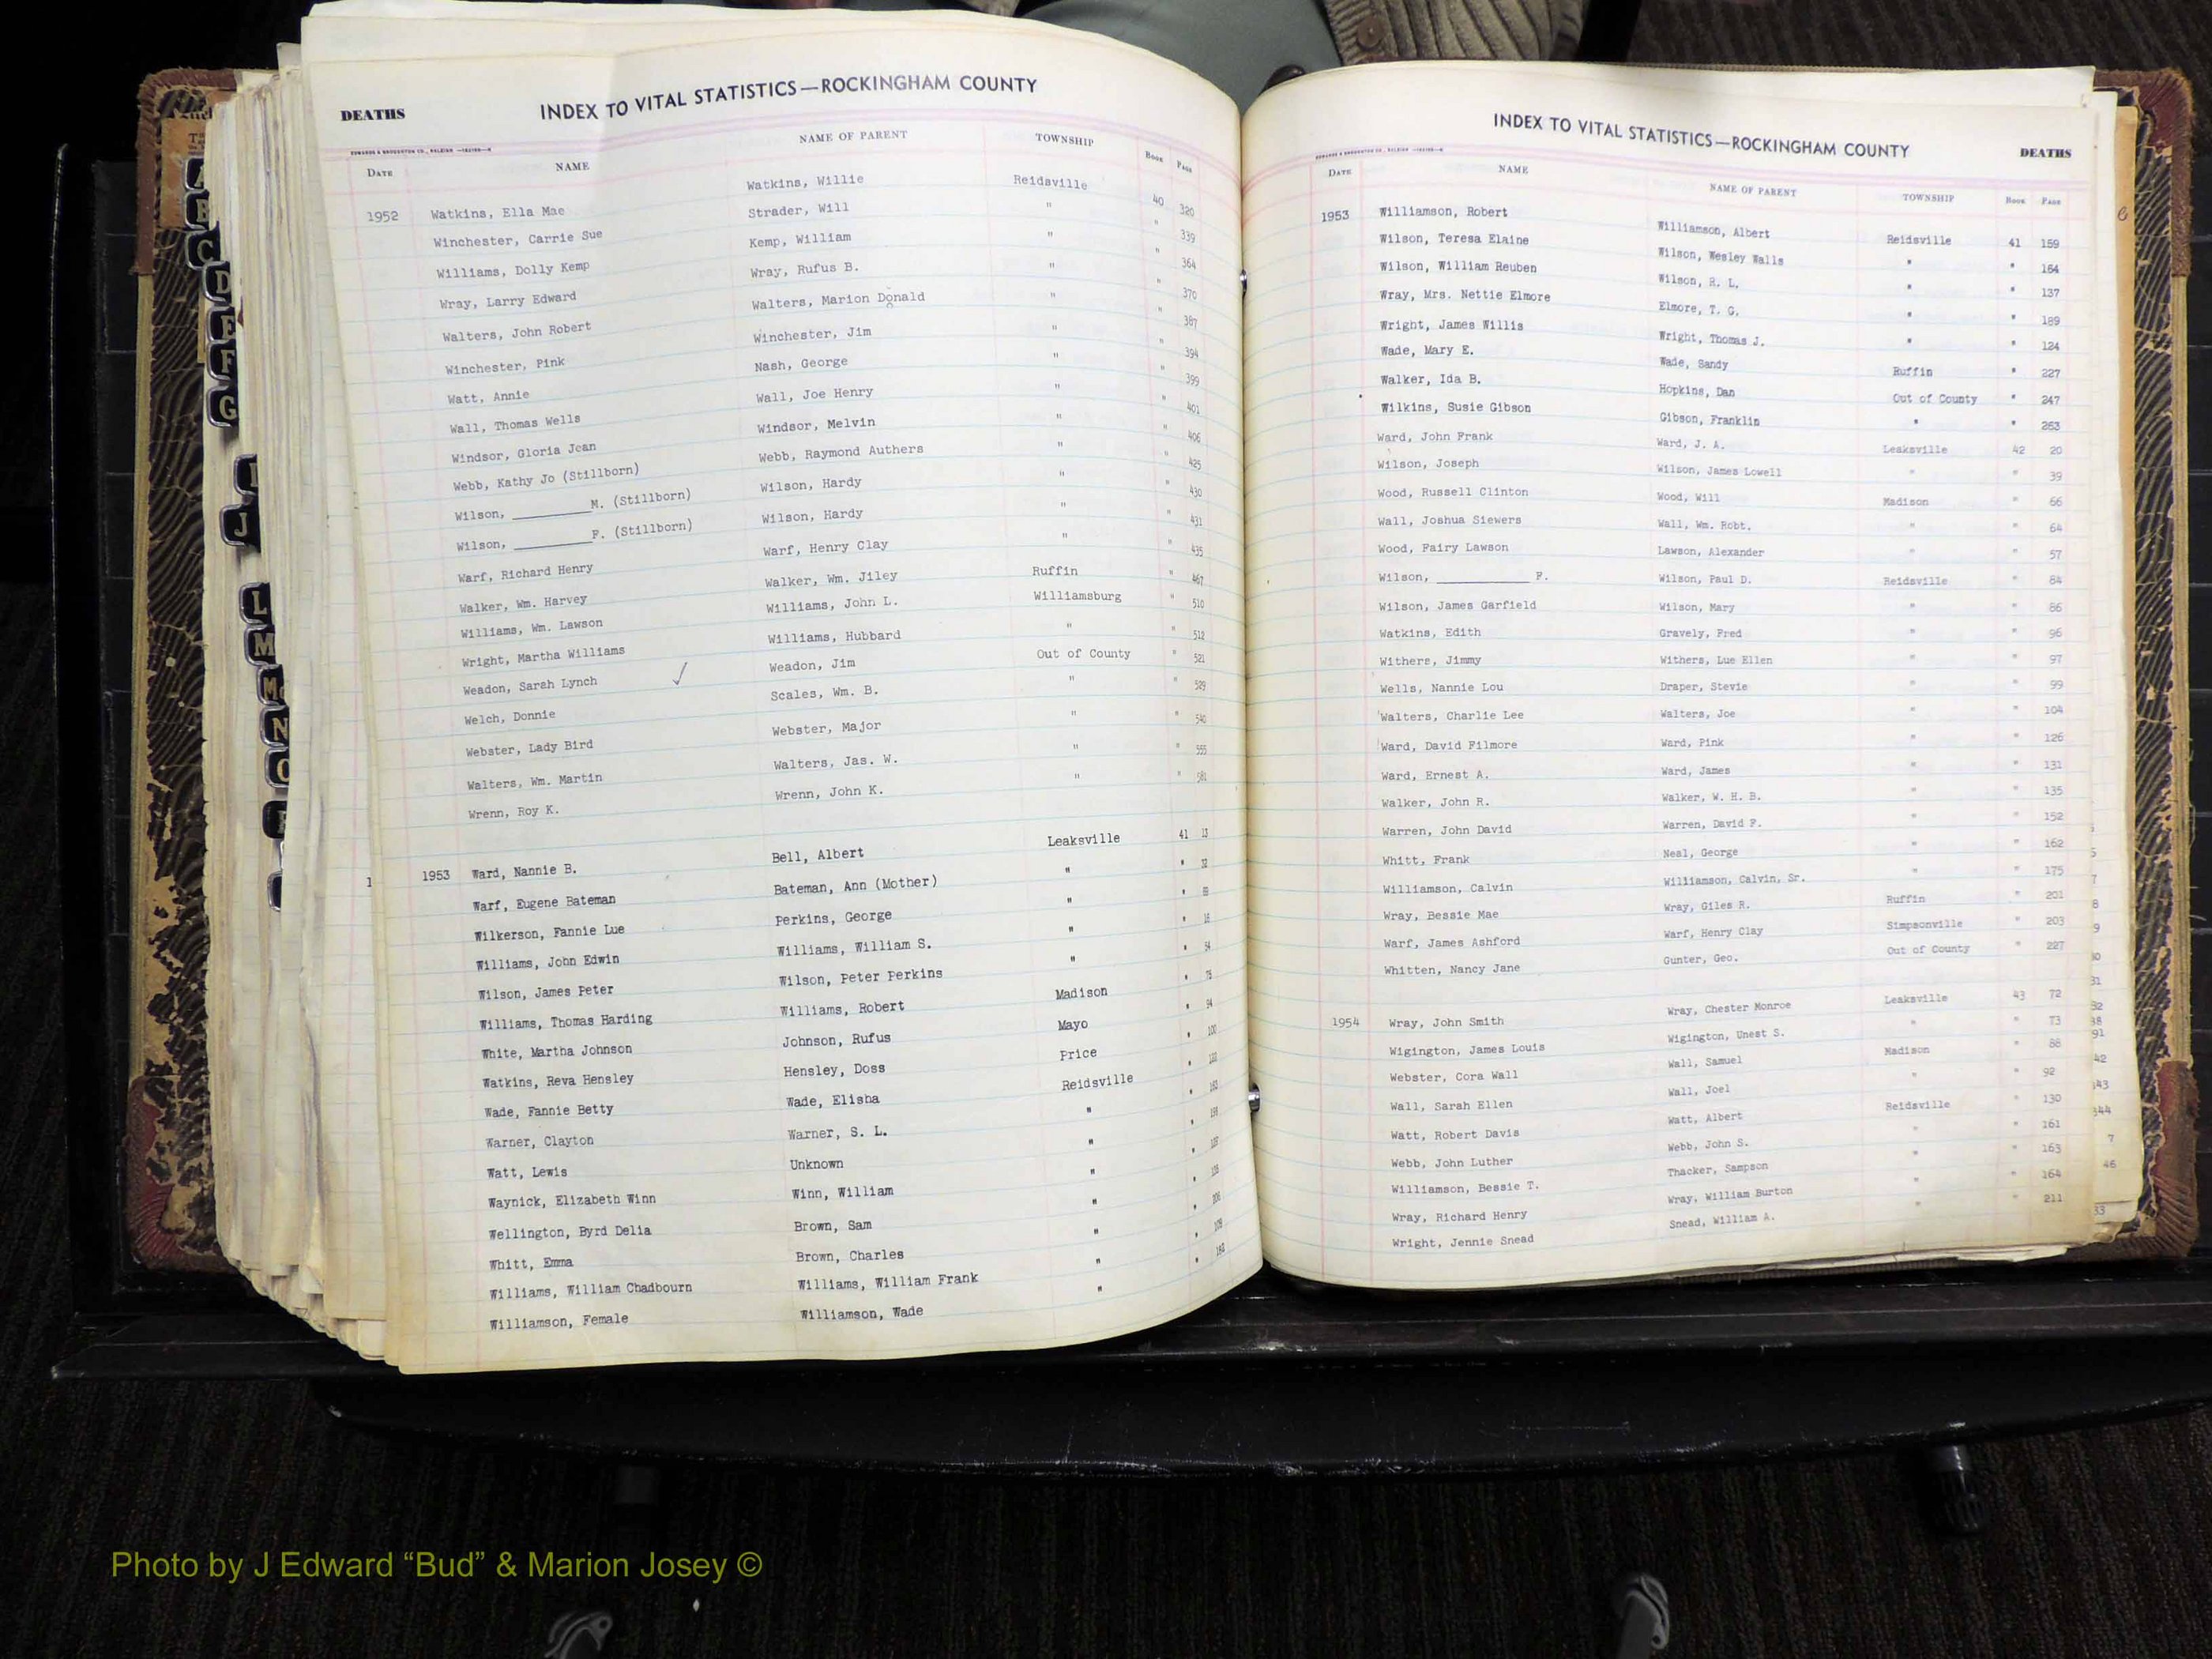 DEATHS INDEX TO VITAL STATISTICS—ROCKINGHAM COUNTY
EDWARDS & BROUGHTON CO., RALEIGH
DATE NAME NAME OF PARENT TOWNSHIP BOOK PAGE
1952 Watkins, Ella Mae Watkins, Willie Reidsville 40 320
Winchester, Carrie Sue Strader, Will " " 339
Williams, Dolly Kemp Kemp, William " " 364
Wray, Larry Edward Wray, Rufus B. " " 370
Walters, John Robert Walters, Marion Donald " " 387
Winchester, Pink Winchester, Jim " " 394
Watt, Annie Nash, George " " 399
Wall, Thomas Wells Wall, Joe Henry " " 401
Windsor, Gloria Jean Windsor, Melvin " " 406
Webb, Kathy Jo (Stillborn) Webb, Raymond Authers " " 425
Wilson, __________ M. (Stillborn) Wilson, Hardy " " 430
Wilson, __________ F. (Stillborn) Wilson, Hardy " " 431
Warf, Richard Henry Warf, Henry Clay " " 435
Walker, Wm. Harvey Walker, Wm. Jiley Ruffin " 467
Williams, Wm. Lawson Williams, John L. Williamsburg " 510
Wright, Martha Williams Williams, Hubbard " " 512
Weadon, Sarah Lynch ✓ Weadon, Jim Out of County " 521
Welch, Donnie Scales, Wm. B. " " 529
Webster, Lady Bird Webster, Major " " 540
Walters, Wm. Martin Walters, Jas. W. " " 555
Wrenn, Roy K. Wrenn, John K. " " 581
1953 Ward, Nannie B. Bell, Albert Leaksville 41 13
Warf, Eugene Bateman Bateman, Ann (Mother) " "
Wilkerson, Fannie Lue Perkins, George " "
Williams, John Edwin Williams, William S. " "
Wilson, James Peter Wilson, Peter Perkins " "
Williams, Thomas Harding Williams, Robert Madison "
White, Martha Johnson Johnson, Rufus Mayo "
Watkins, Reva Hensley Hensley, Doss Price " 100
Wade, Fannie Betty Wade, Elisha Reidsville "
Warner, Clayton Warner, S. L. " "
Watt, Lewis Unknown " "
Waynick, Elizabeth Winn Winn, William " "
Wellington, Byrd Delia Brown, Sam " "
Whitt, Emma Brown, Charles " "
Williams, William Chadbourn Williams, William Frank " "
Williamson, Female Williamson, Wade " "
INDEX TO VITAL STATISTICS—ROCKINGHAM COUNTY DEATHS
EDWARDS & BROUGHTON CO., RALEIGH
DATE NAME NAME OF PARENT TOWNSHIP BOOK PAGE
1953 Williamson, Robert Williamson, Albert Reidsville 41 159
Wilson, Teresa Elaine Wilson, Wesley Walls " " 164
Wilson, William Reuben Wilson, R. L. " " 137
Wray, Mrs. Nettie Elmore Elmore, T. G. " " 189
Wright, James Willis Wright, Thomas J. " " 124
Wade, Mary E. Wade, Sandy Ruffin " 227
Walker, Ida B. Hopkins, Dan Out of County " 247
Wilkins, Susie Gibson Gibson, Franklin " " 263
Ward, John Frank Ward, J. A. Leaksville 42 20
Wilson, Joseph Wilson, James Lowell " " 39
Wood, Russell Clinton Wood, Will Madison " 66
Wall, Joshua Siewers Wall, Wm. Robt. " " 64
Wood, Fairy Lawson Lawson, Alexander " " 57
Wilson, ____________ F. Wilson, Paul D. Reidsville " 84
Wilson, James Garfield Wilson, Mary " " 86
Watkins, Edith Gravely, Fred " " 96
Withers, Jimmy Withers, Lue Ellen " " 97
Wells, Nannie Lou Draper, Stevie " " 99
Walters, Charlie Lee Walters, Joe " " 104
Ward, David Filmore Ward, Pink " " 126
Ward, Ernest A. Ward, James " " 131
Walker, John R. Walker, W. H. B. " " 135
Warren, John David Warren, David F. " " 152
Whitt, Frank Neal, George " " 162
Williamson, Calvin Williamson, Calvin, Sr. " " 175
Wray, Bessie Mae Wray, Giles R. Ruffin " 201
Warf, James Ashford Warf, Henry Clay Simpsonville " 203
Whitten, Nancy Jane Gunter, Geo. Out of County " 227
1954 Wray, John Smith Wray, Chester Monroe Leaksville 43 72
Wigington, James Louis Wigington, Unest S. " " 73
Webster, Cora Wall Wall, Samuel Madison " 88
Wall, Sarah Ellen Wall, Joel " " 92
Watt, Robert Davis Watt, Albert Reidsville " 130
Webb, John Luther Webb, John S. " " 161
Williamson, Bessie T. Thacker, Sampson " " 163
Wray, Richard Henry Wray, William Burton " " 164
Wright, Jennie Snead Snead, William A. " " 211
A
B
C
D
E
F
G
J
L
M
Mc
N
O
Photo by J Edward “Bud” & Marion Josey ©